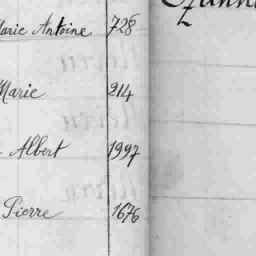 Marie Antoine 728
Marie 214
Albert 1997
Pierre 1676